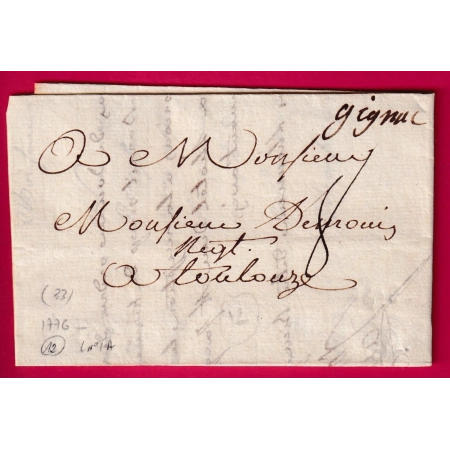 gignac
A Monsieur
Monsieur Derrouis
Negt.
8
A toulouze
(33)
1776 -
12 L n°1A